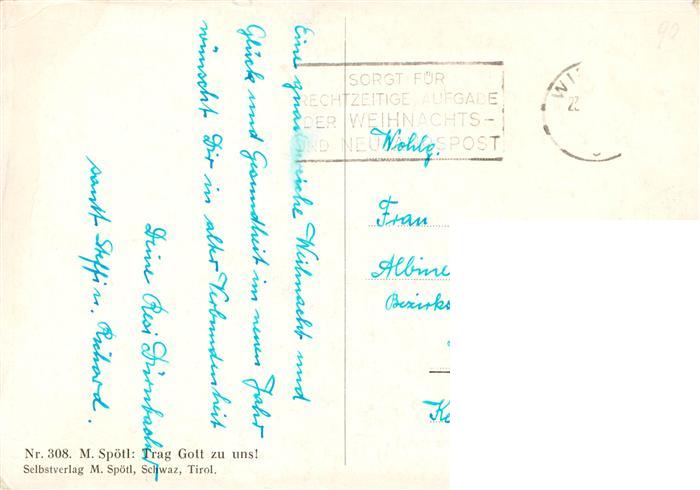 Eine gnadenreiche Weihnacht und
Glück und Gesundheit im neuen Jahr
wünscht Dir in alter Verbundenheit
Deine Resi
samt Steffi u. Richard.
SORGT FÜR
RECHTZEITIGE AUFGABE
DER WEIHNACHTS-
UND NEUJAHRSPOST
WI
22
90
Wohlg.
Frau
Albine
Bezirks
Ke
Nr. 308. M. Spötl: Trag Gott zu uns!
Selbstverlag M. Spötl, Schwaz, Tirol.